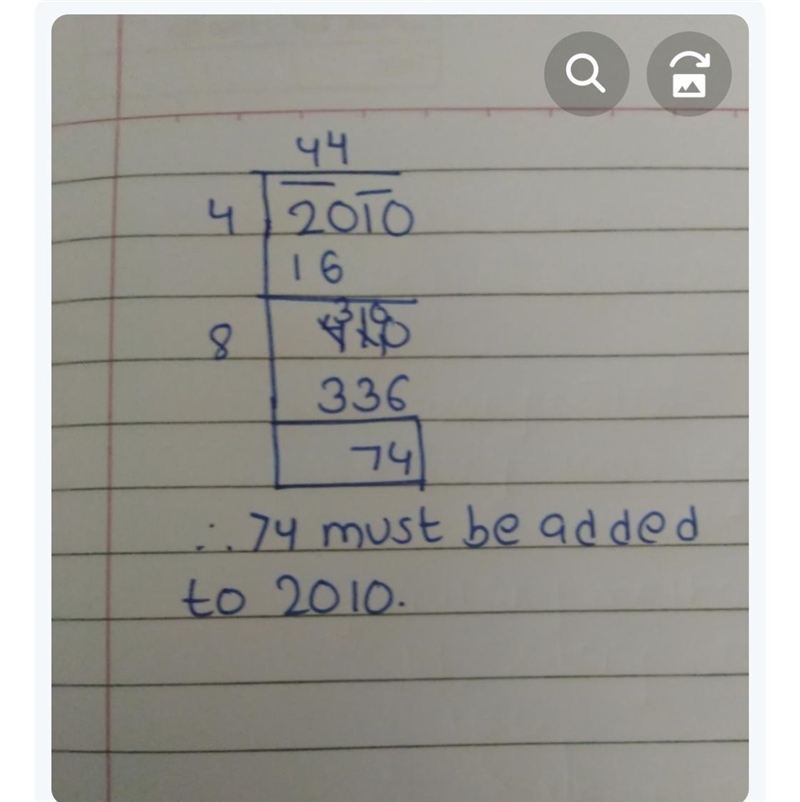 44
4 2010
16
8 410
336
74
∴ 74 must be added
to 2010.